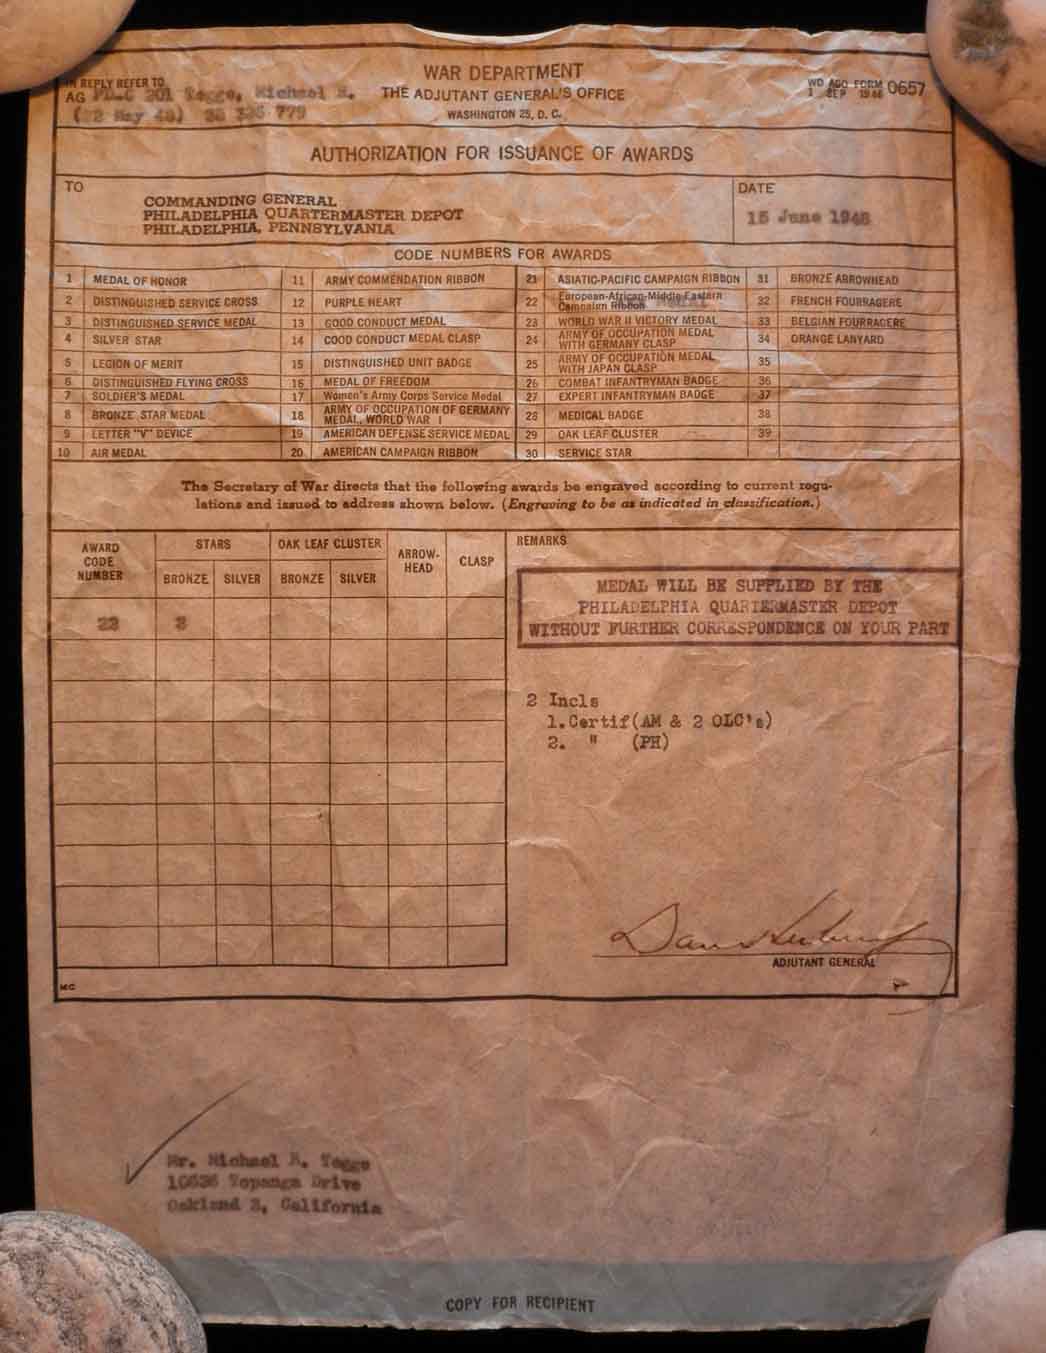 IN REPLY REFER TO
AG PD-C 201 Yeggo, Michael R.
(22 May 48)
WAR DEPARTMENT
THE ADJUTANT GENERAL'S OFFICE
WASHINGTON 25, D. C.
WD AGO FORM 0657
1 SEP 1946
AUTHORIZATION FOR ISSUANCE OF AWARDS
TO
COMMANDING GENERAL
PHILADELPHIA QUARTERMASTER DEPOT
PHILADELPHIA, PENNSYLVANIA
DATE
15 June 1948
CODE NUMBERS FOR AWARDS
1 MEDAL OF HONOR 11 ARMY COMMENDATION RIBBON 21 ASIATIC-PACIFIC CAMPAIGN RIBBON 31 BRONZE ARROWHEAD
2 DISTINGUISHED SERVICE CROSS 12 PURPLE HEART 22 European-African-Middle-Eastern Campaign Ribbon 32 FRENCH FOURRAGERE
3 DISTINGUISHED SERVICE MEDAL 13 GOOD CONDUCT MEDAL 23 WORLD WAR II VICTORY MEDAL 33 BELGIAN FOURRAGERE
4 SILVER STAR 14 GOOD CONDUCT MEDAL CLASP 24 ARMY OF OCCUPATION MEDAL WITH GERMANY CLASP 34 ORANGE LANYARD
5 LEGION OF MERIT 15 DISTINGUISHED UNIT BADGE 25 ARMY OF OCCUPATION MEDAL WITH JAPAN CLASP 35
6 DISTINGUISHED FLYING CROSS 16 MEDAL OF FREEDOM 26 COMBAT INFANTRYMAN BADGE 36
7 SOLDIER'S MEDAL 17 Women's Army Corps Service Medal 27 EXPERT INFANTRYMAN BADGE 37
8 BRONZE STAR MEDAL 18 ARMY OF OCCUPATION OF GERMANY MEDAL, WORLD WAR I 28 MEDICAL BADGE 38
9 LETTER "V" DEVICE 19 AMERICAN DEFENSE SERVICE MEDAL 29 OAK LEAF CLUSTER 39
10 AIR MEDAL 20 AMERICAN CAMPAIGN RIBBON 30 SERVICE STAR
The Secretary of War directs that the following awards be engraved according to current regu-
lations and issued to address shown below. (Engraving to be as indicated in classification.)
AWARD CODE NUMBER
STARS
BRONZE SILVER
OAK LEAF CLUSTER
BRONZE SILVER
ARROW-
HEAD
CLASP
22
REMARKS
MEDAL WILL BE SUPPLIED BY THE
PHILADELPHIA QUARTERMASTER DEPOT
WITHOUT FURTHER CORRESPONDENCE ON YOUR PART
2 Incls
1.Certif(AM & 2 OLC's)
2. " (PH)
ADJUTANT GENERAL
MC
Mr. Michael R. Yeggo
Topanga Drive
Oakland 3, California
COPY FOR RECIPIENT